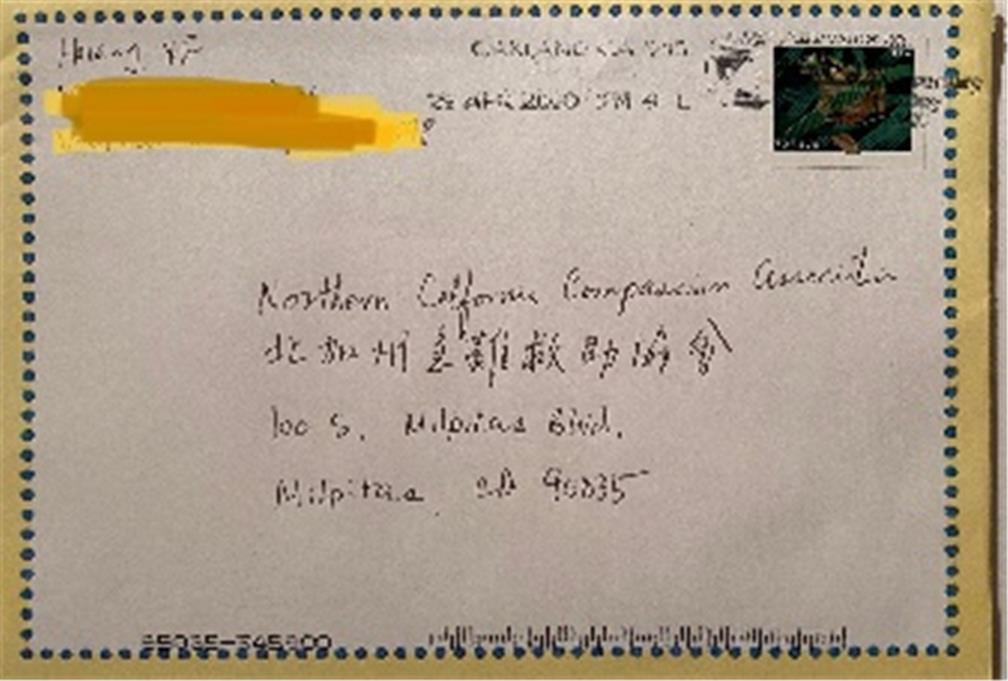 Huang YF
OAKLAND CA 945
28 APR 2020 PM 4 L
Northern California Compassion Association
北加州急難救助協會
100 S. Milpitas Blvd.
Milpitas CA 90035
95035-345800